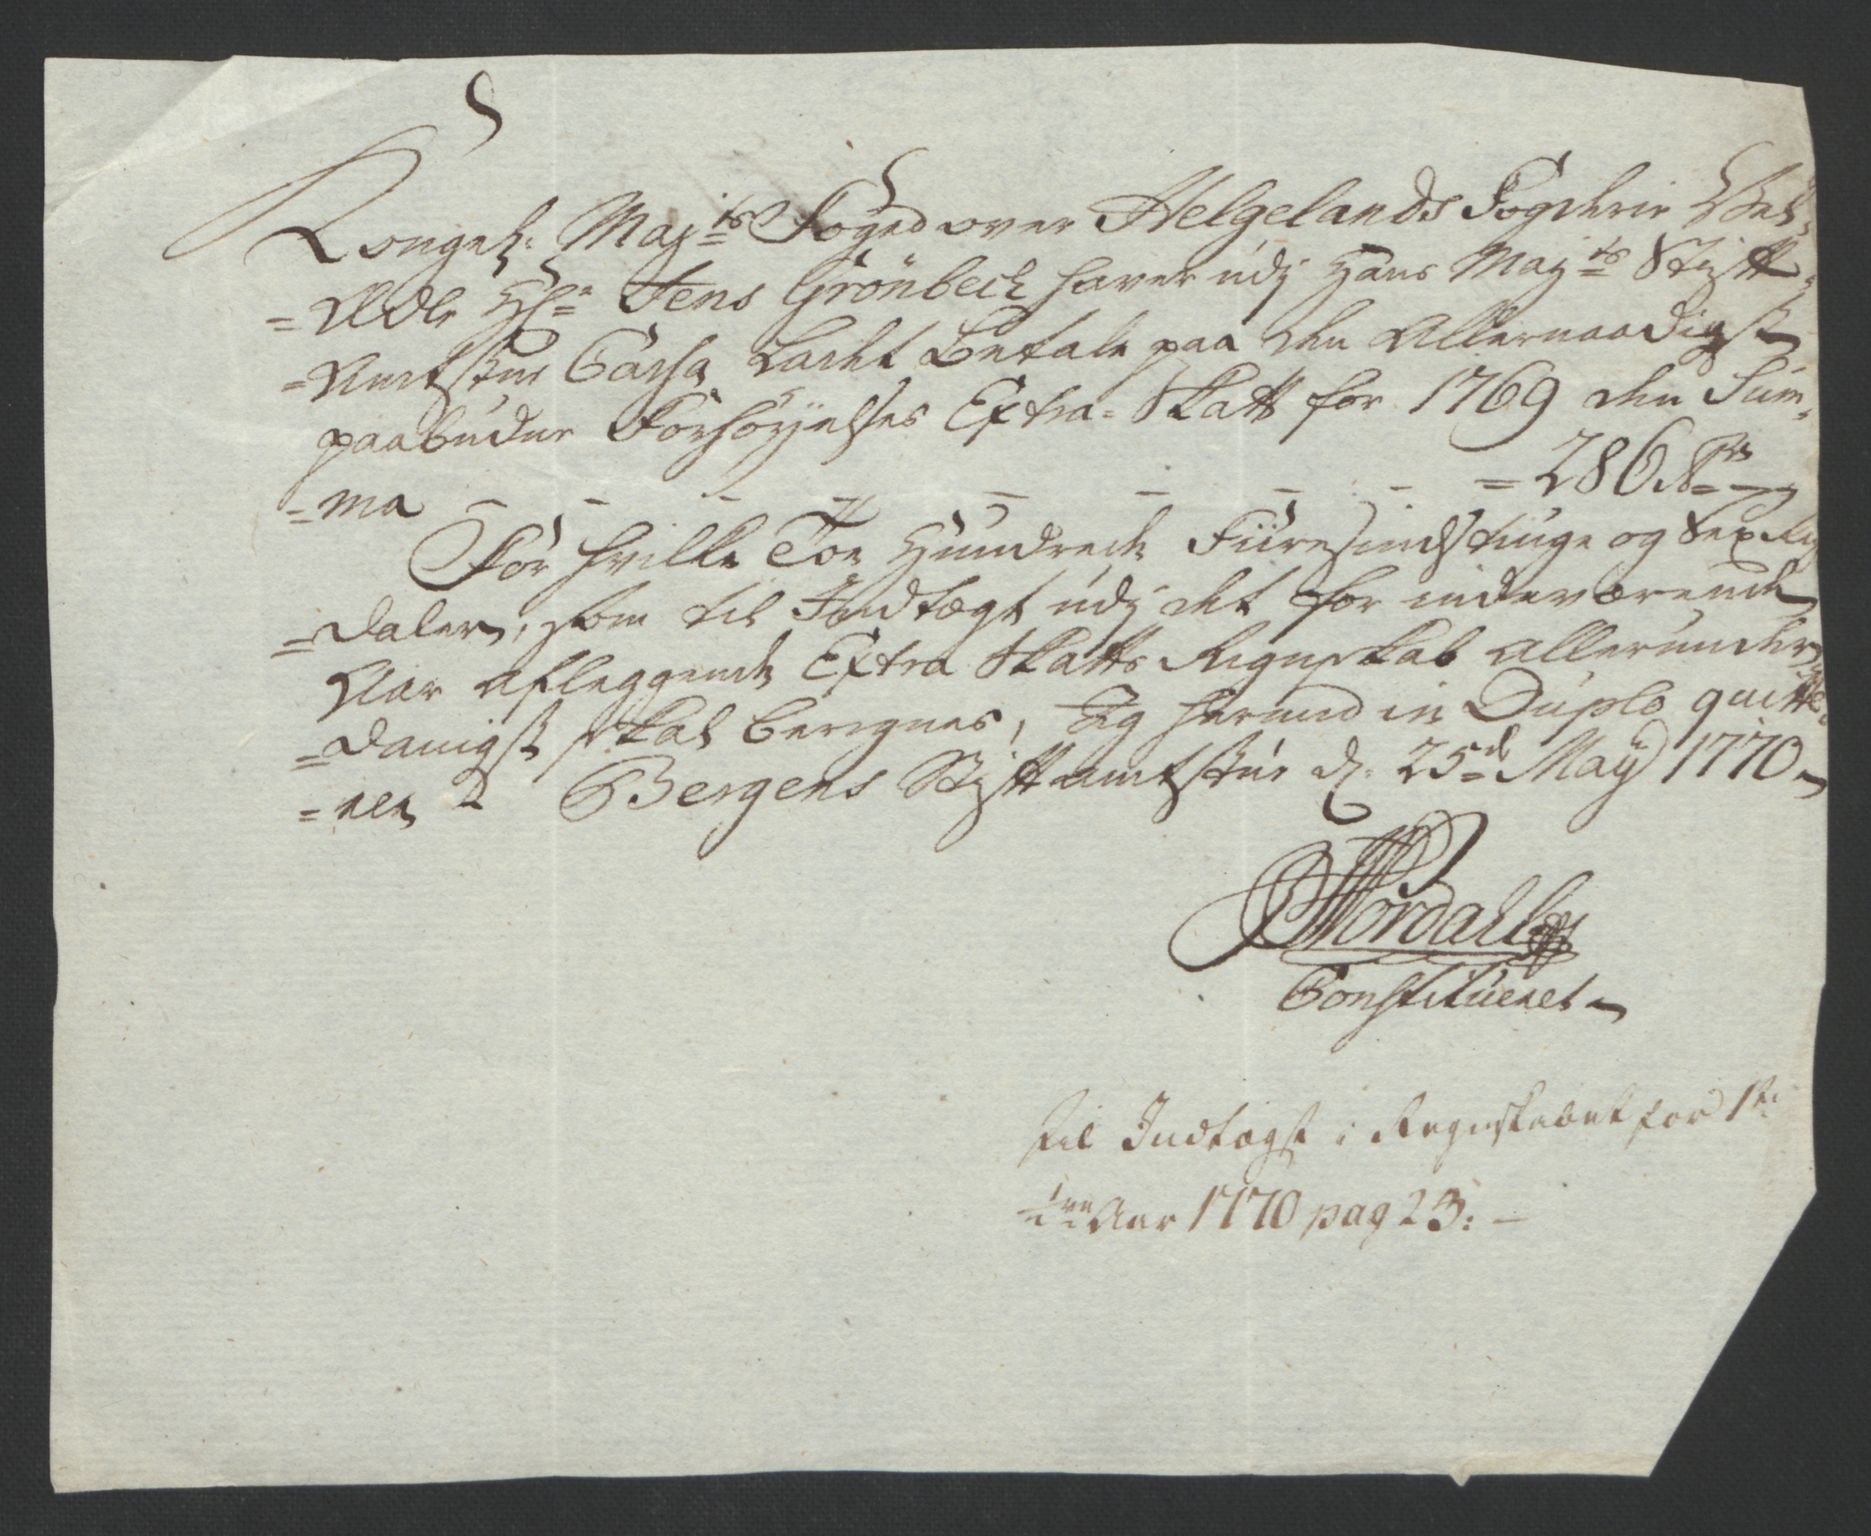 Kongel: Maj:ts Foged over Helgelands Fogderie Vel-
=Ædle Hr: Jens Grönbech haver udj Hans Maj:ts Stift=
=Amtstue Cassa ladet Betale paa den Allernaadigst
paabudne Forhöyelses Extra=Skatt for 1769 den Sum-
=ma - - - - - - - =286 Rdr
For hvilke Toe Hundrede Fiiresindstiuge og Sex Rix
=daler, som til Indtægt udj det for indeværende
Aar aflæggende Extra Skatts Regnskab allerunder
=danigst skal beregnes, Jeg herved in Duplo quitte-
=rer Bergens Stiftamtstue d: 25de Maij 1770
Nordahl
Constitueret
til Indtægt i Regnskabet for
Aar 1770 pag 23: -